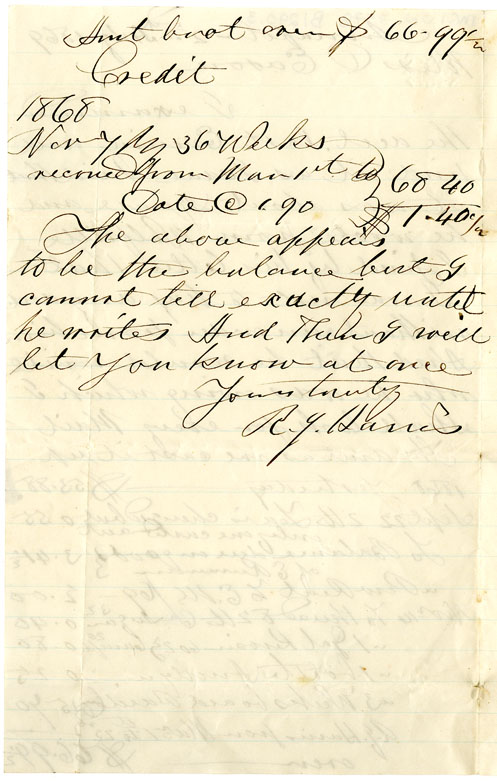 Amt brot over $ 66-99½
Credit
1868
Nov 7 By 36 Weeks
from Mar 1st to } 68 40
Date @ 1.90 $ 1-40½
The above appears
to be the balance but I
cannot till exactly until
he writes And Then I will
let You know at once
Yours truly
R. J. Harris